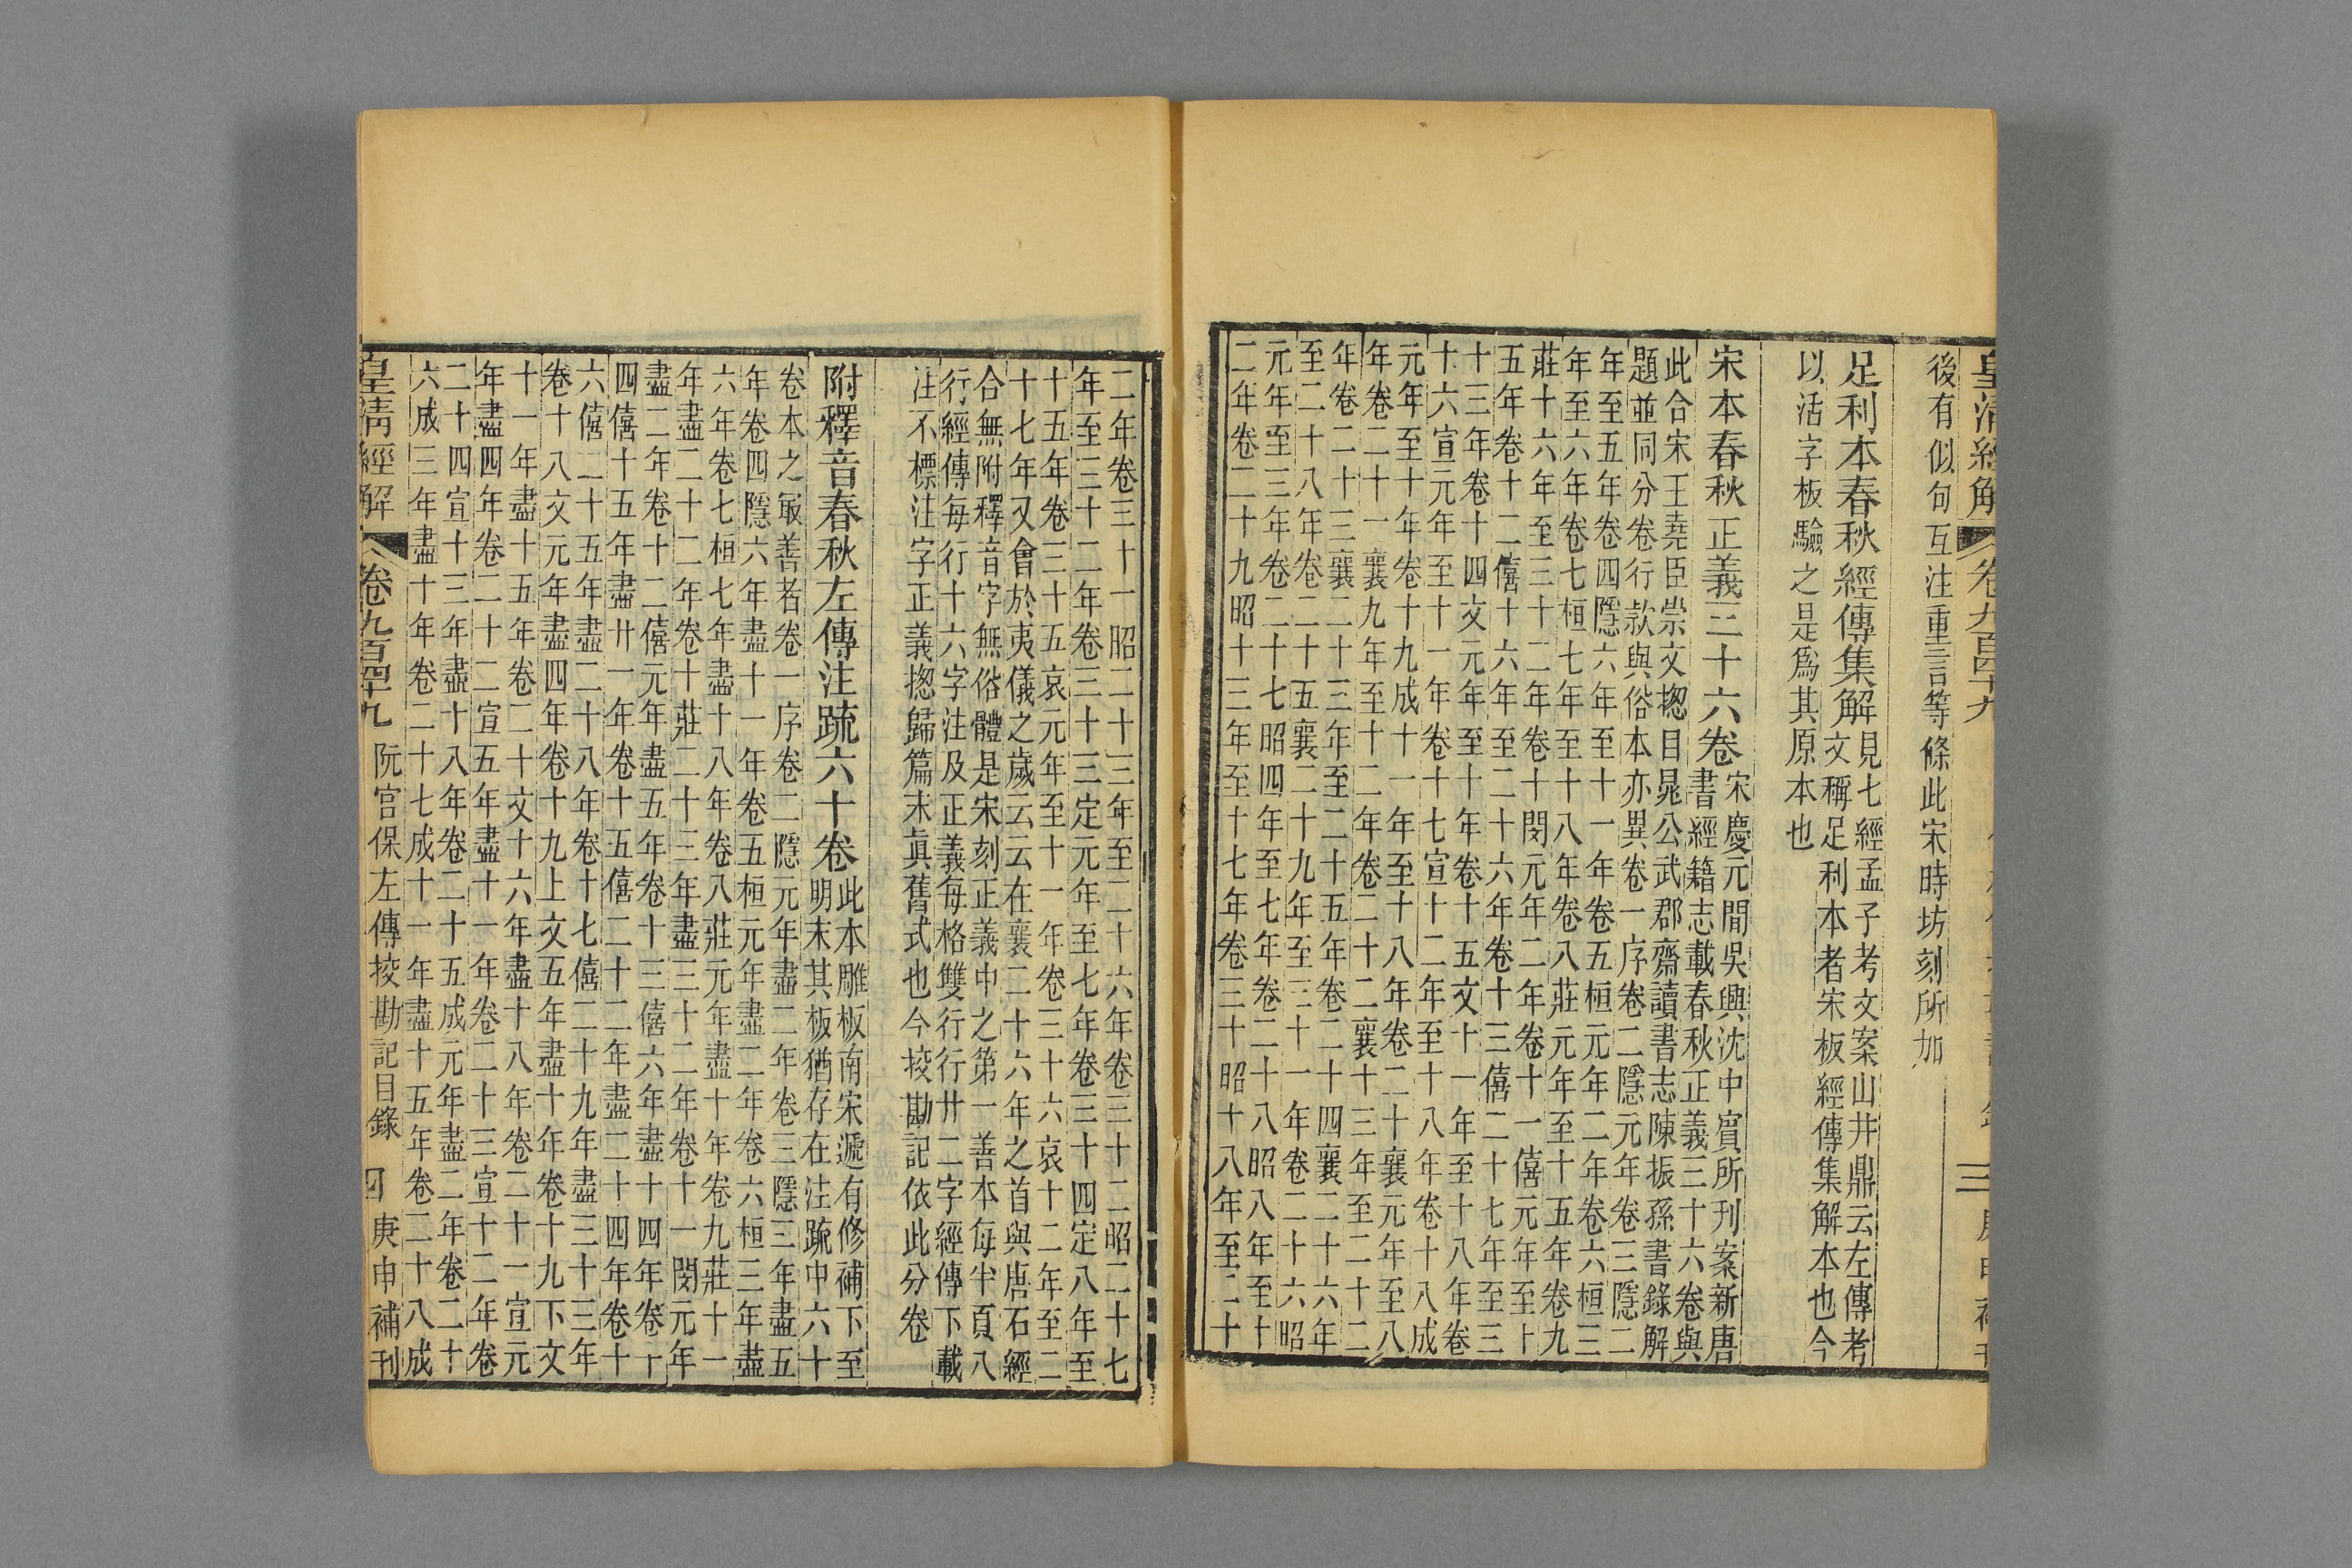 皇清經解 卷九百四十九 三
後有似句互注重言等條此宋時坊刻所加
足利本春秋經傳集解見七經孟子考文案山井鼎云左傳考
文稱足利本者宋板經傳集解本也今
以活字板驗之是爲其原本也
宋本春秋正義三十六卷宋慶元間吳興沈中賓所刊案新唐
書經籍志載春秋正義三十六卷與
此合宋王堯臣崇文揔目晁公武郡齋讀書志陳振孫書錄解
題並同分卷行款與俗本亦異卷一序卷二隱元年卷三隱二
年至五年卷四隱六年至十一年卷五桓元年二年卷六桓三
年至六年卷七桓七年至十八年卷八莊元年至十五年卷九
莊十六年至三十二年卷十閔元年二年卷十一僖元年至十
五年卷十二僖十六年至二十六年卷十三僖二十七年至三
十三年卷十四文元年至十年卷十五文十一年至十八年卷
十六宣元年至十一年卷十七宣十二年至十八年卷十八成
元年至十年卷十九成十一年至十八年卷二十襄元年至八
年卷二十一襄九年至十二年卷二十二襄十三年至二十二
年卷二十三襄二十三年至二十五年卷二十四襄二十六年
至二十八年卷二十五襄二十九年至三十一年卷二十六昭
元年至三年卷二十七昭四年至七年卷二十八昭八年至十
二年卷二十九昭十三年至十七年卷三十昭十八年至二十
二年卷三十一昭二十三年至二十六年卷三十二昭二十七
年至三十二年卷三十三定元年至七年卷三十四定八年至
十五年卷三十五哀元年至十一年卷三十六哀十二年至二
十七年又會於夷儀之歲云云在襄二十六年之首與唐石經
合無附釋音字無俗體是宋刻正義中之第一善本每半頁八
行經傳每行十六字注及正義每格雙行行廿二字經傳下載
注不標注字正義揔歸篇末眞舊式也今挍勘記依此分卷
附釋音春秋左傳注疏六十卷此本雕板南宋遞有修補下至
明末其板猶存在注疏中六十
卷本之㝡善者卷一序卷二隱元年盡二年卷三隱三年盡五
年卷四隱六年盡十一年卷五桓元年盡二年卷六桓三年盡
六年卷七桓七年盡十八年卷八莊元年盡十年卷九莊十一
年盡二十二年卷十莊二十三年盡三十二年卷十一閔元年
盡二年卷十二僖元年盡五年卷十三僖六年盡十四年卷十
四僖十五年盡廿一年卷十五僖二十二年盡二十四年卷十
六僖二十五年盡二十八年卷十七僖二十九年盡三十三年
卷十八文元年盡四年卷十九上文五年盡十年卷十九下文
十一年盡十五年卷二十文十六年盡十八年卷二十一宣元
年盡四年卷二十二宣五年盡十一年卷二十三宣十二年卷
二十四宣十三年盡十八年卷二十五成元年盡二年卷二十
六成三年盡十年卷二十七成十一年盡十五年卷二十八成
皇清經解 卷九百四十九 阮宫保左傳挍勘記目錄 四 庚申補刊